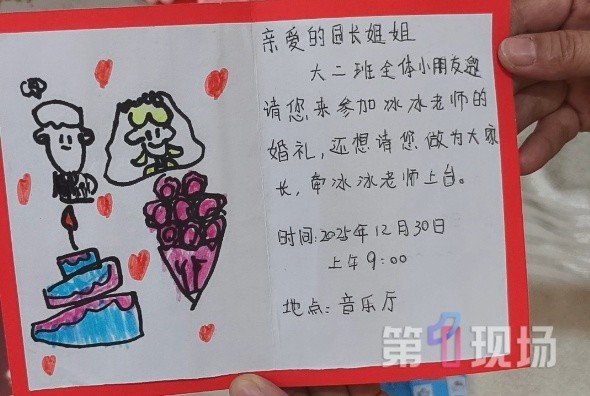 亲爱的园长姐姐
大二班全体小朋友邀
请您来参加冰冰老师的
婚礼，还想请您做为大家
长，牵冰冰老师上台。
时间：2025年12月30日
上午9:00
地点：音乐厅
第1现场